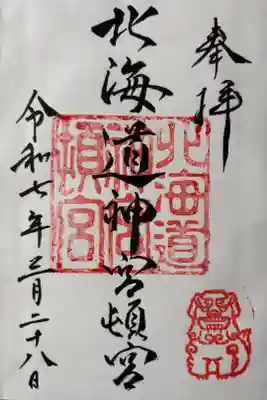 奉拝
北海道神宮頓宮
北海道神宮頓宮
令和七年三月二十八日